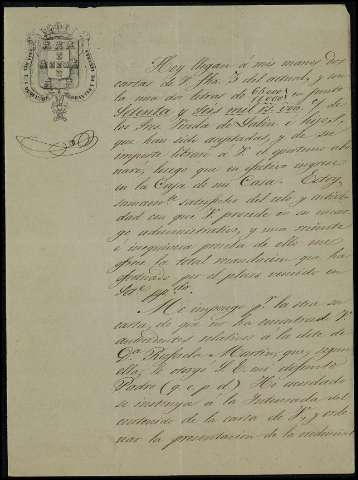 Hoy llegan á mis manos dos
cartas de V. fha. 3 del actual, y con
la una dos letras de 65000 en junto
11000
Setenta y seis mil rs. von. c/ de
los Sres. Viuda de é hijos,
que han sido aceptadas, y de su
importe líquido á V. el oportuno abo
naré, luego que en efectivo ingrese
en la Caja de mi Casa. Estoy
sumamte. satisfecho del celo y activi
dad con que V. procede en su encar
go administrativo, y una nueva
é inequívoca prueba de ello me
ofrece la total que ha
efectuado por el plazo vencido en
ppdo.
Me impongo pr. la otra su
carta, de que no ha encontrado V.
antecedentes relativos á la dote de
Da. Rafaela Martin, que, segun
ella, le otorgó S. E. mi difunto
Padre (q. e. p. d.) He mandado
se instruya á la Interesada del
contenido de la carta de V., y orde
nar la presentacion de la